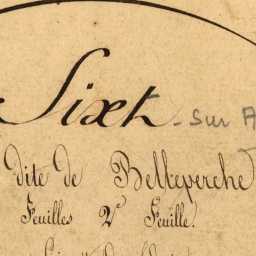 Sixt - Sur A
dite de Belleperche
Feuilles 2e Feuille.